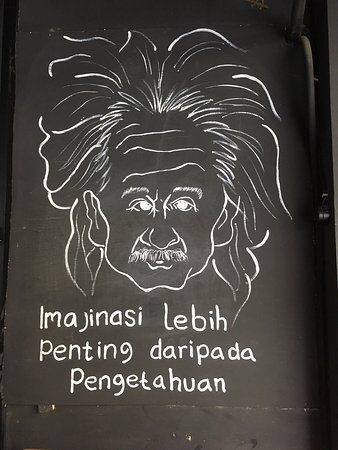 Imajinasi lebih
Penting daripada
Pengetahuan